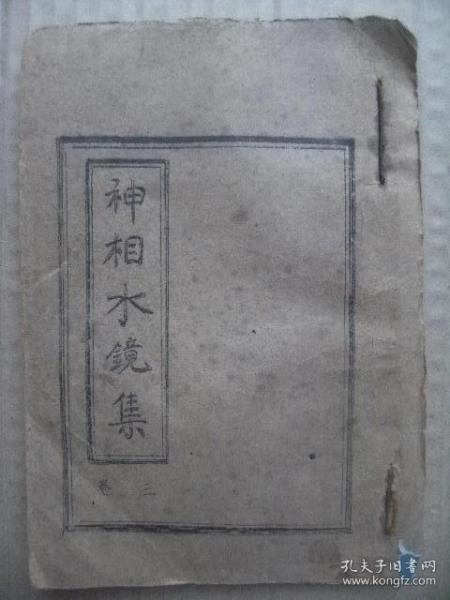 神相水鏡集
卷三
孔夫子旧书网
www.kongfz.com